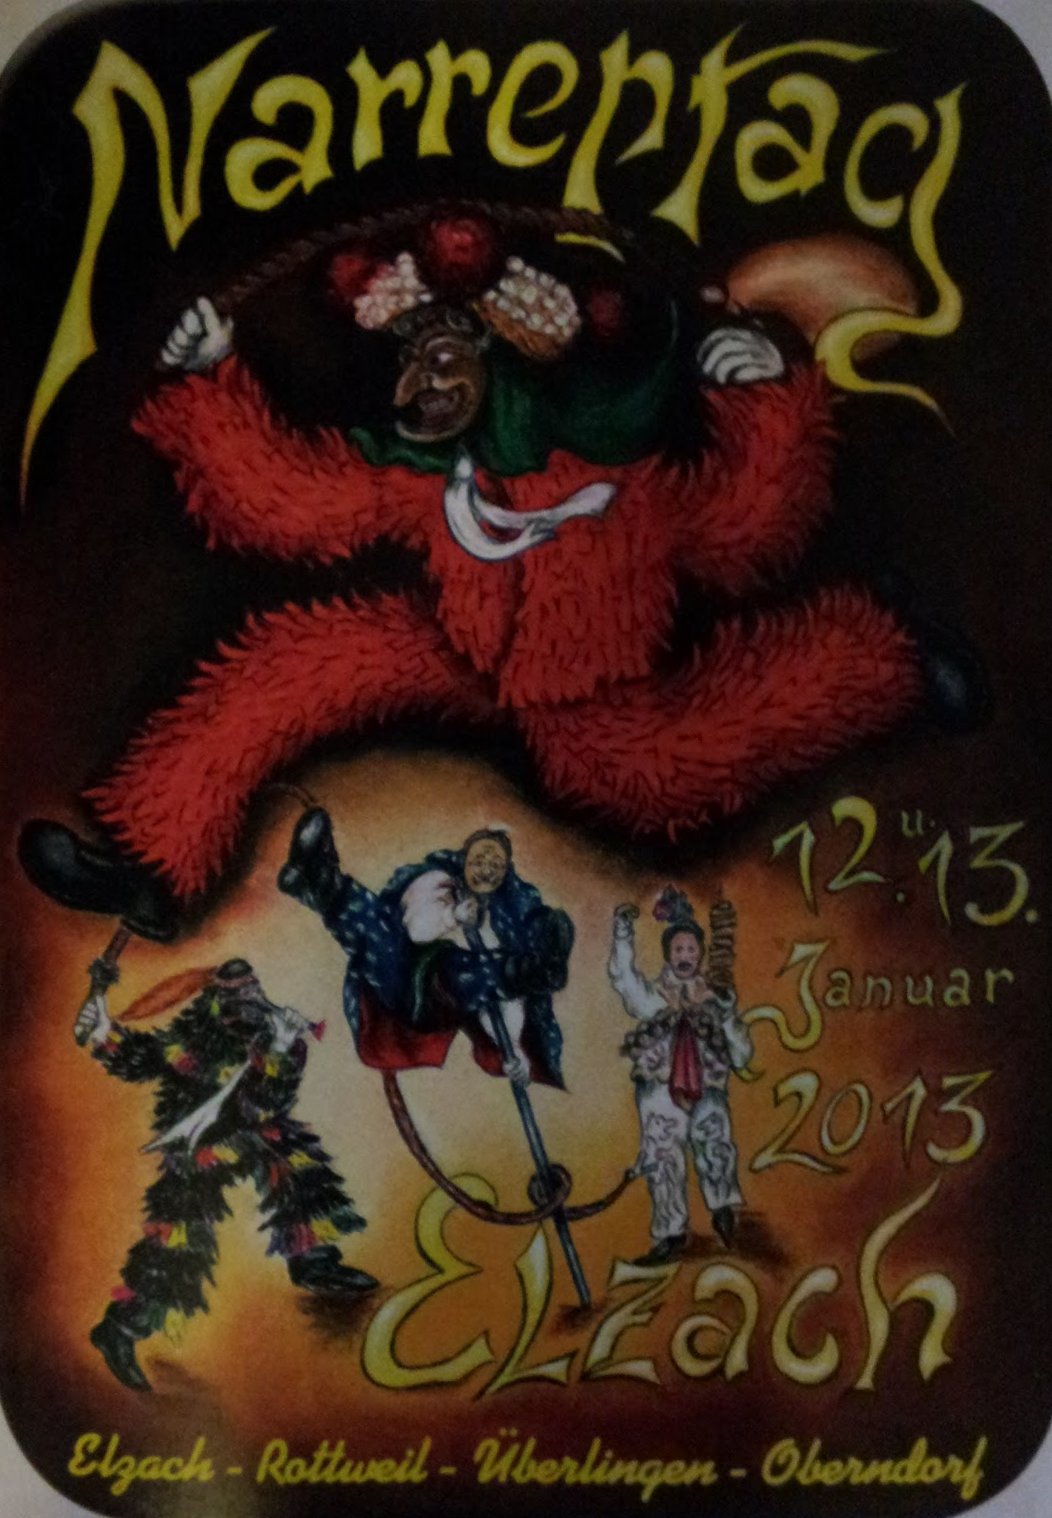 Narrentag
12. u. 13.
Januar
2013
Elzach
Elzach - Rottweil - Überlingen - Oberndorf